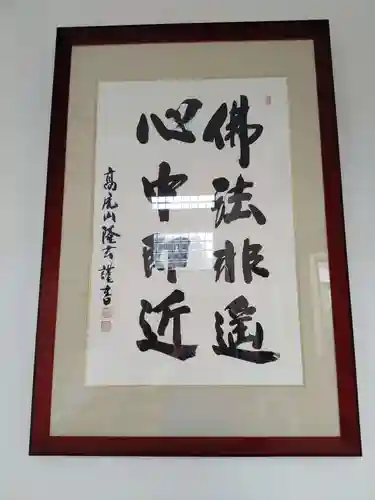 佛法非遥
心中即近
高尾山隆玄謹書